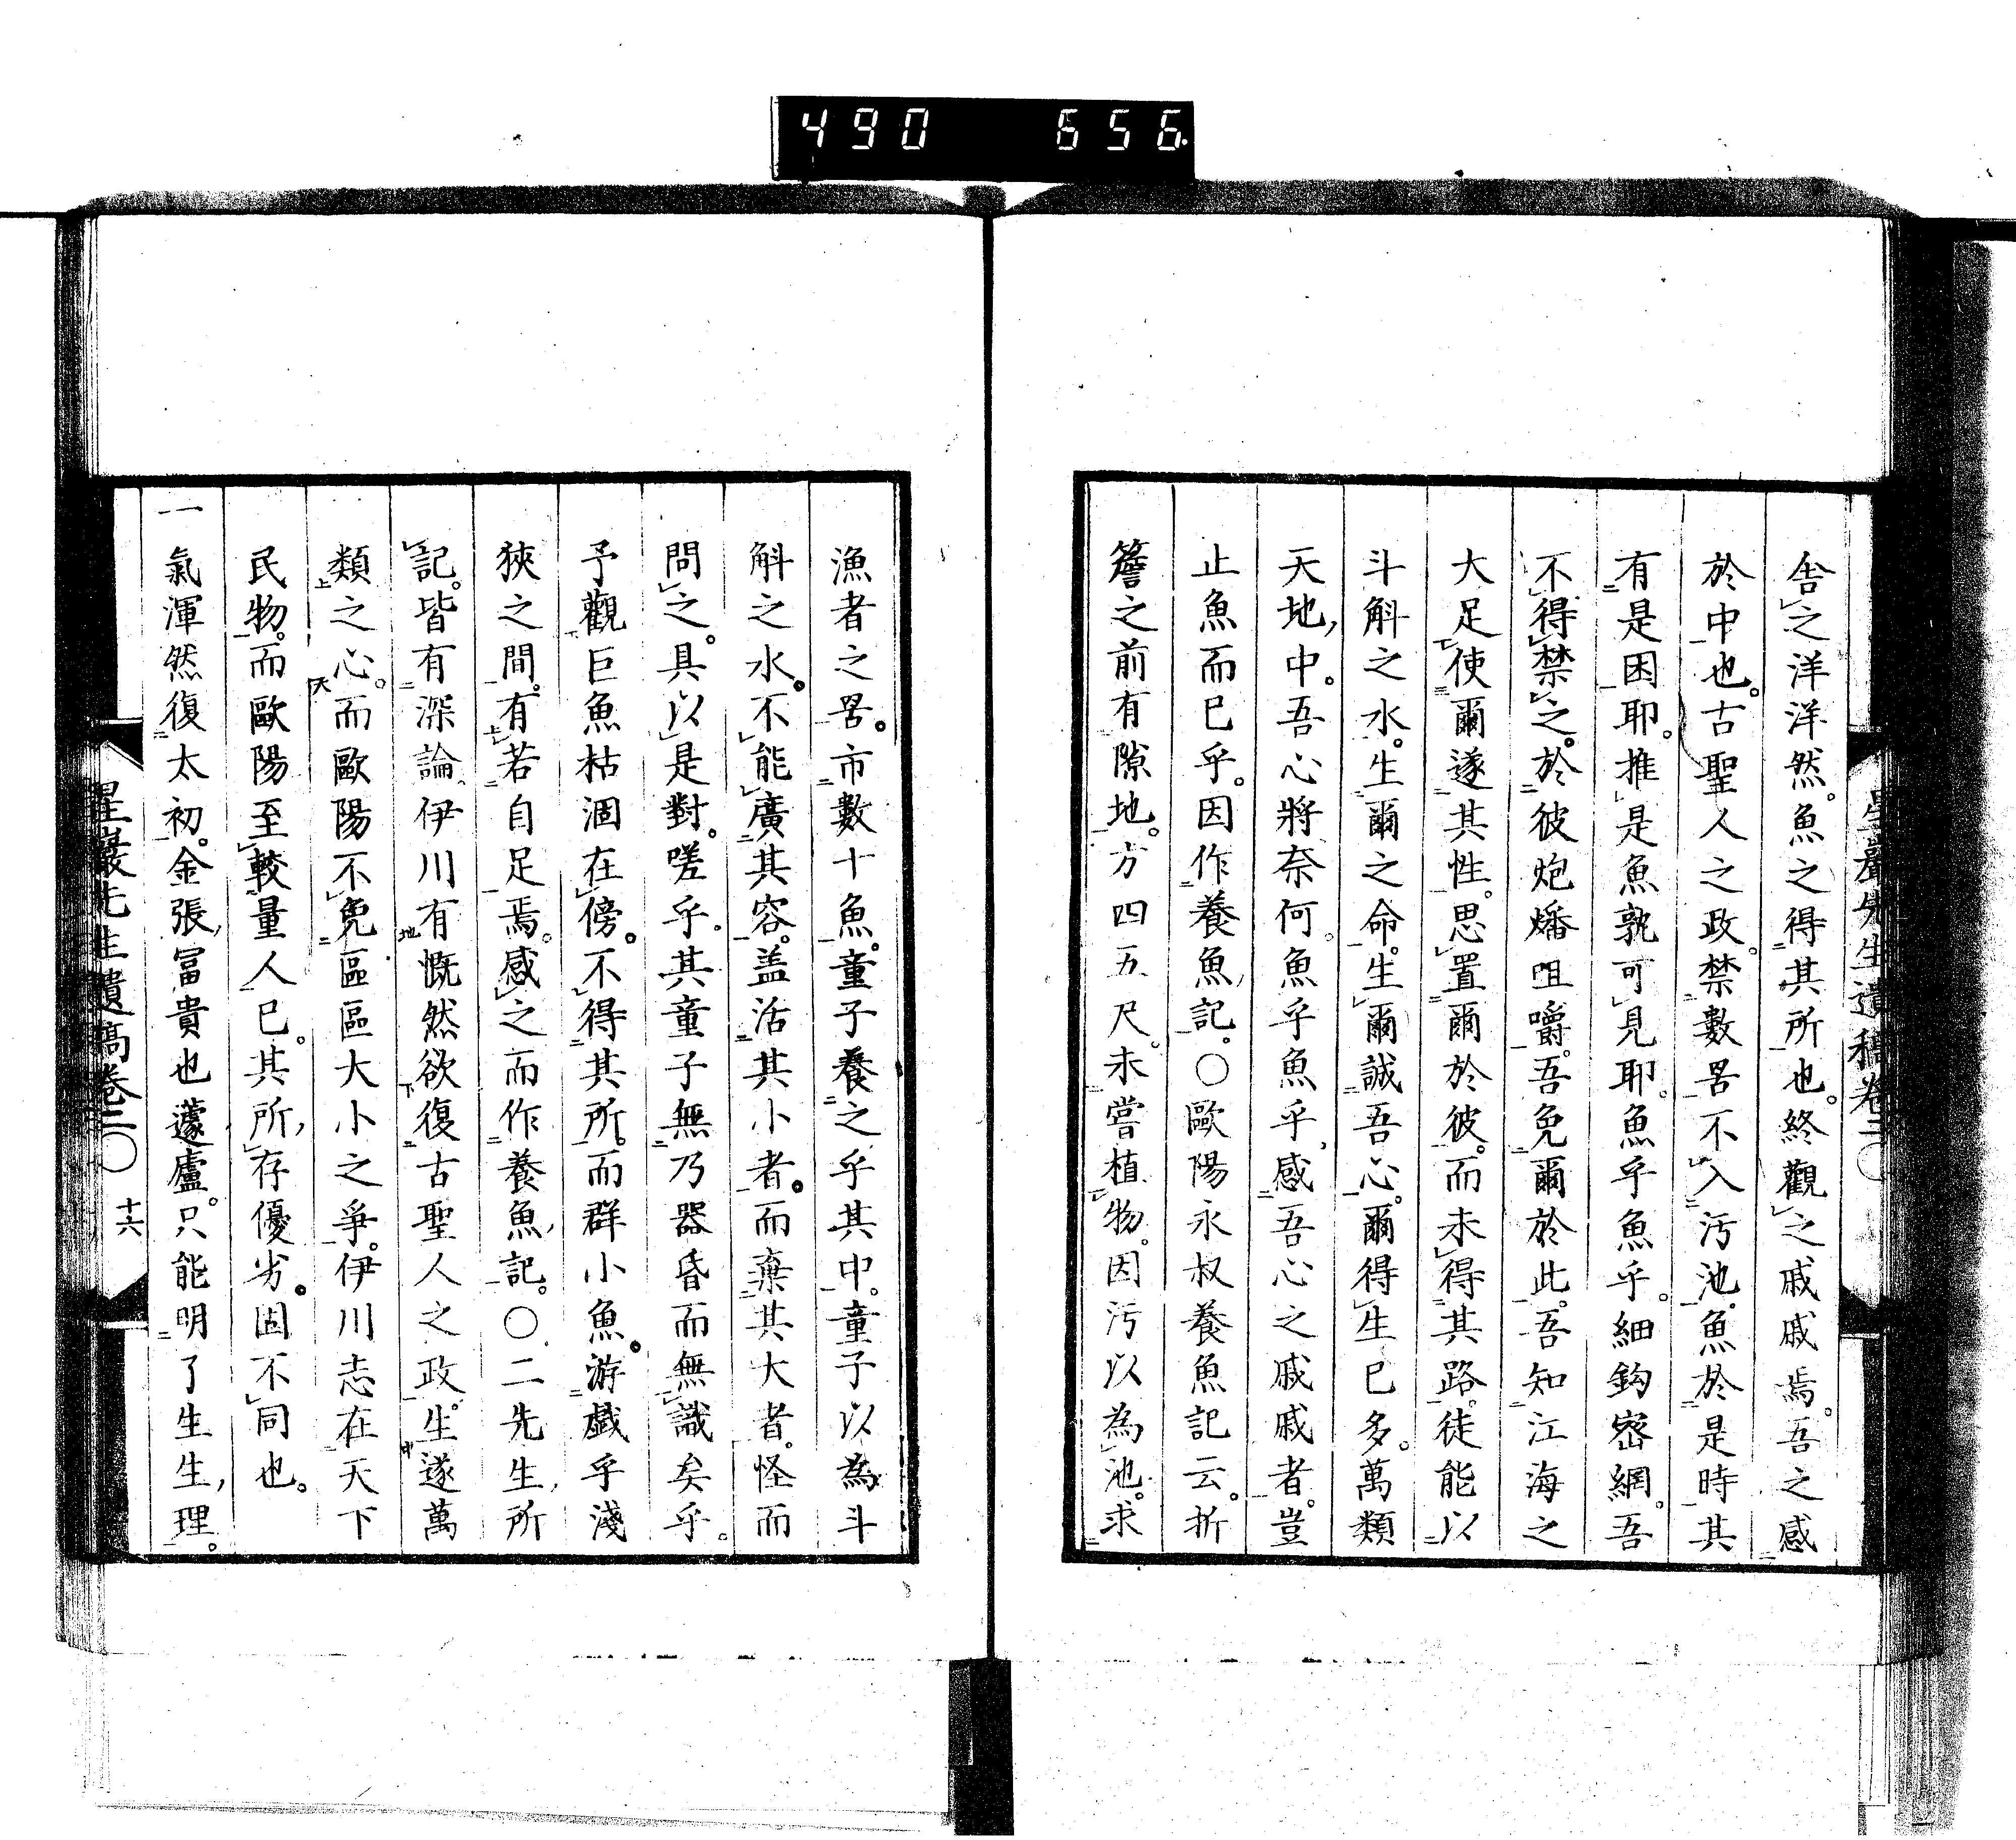 490 656
星巖先生遺稿卷二〇
舍之洋洋然。魚之得其所也。終觀之戚戚焉。吾之感
於中也。古聖人之政。禁數罟不入汚池。魚於是時其
有是困耶。推是魚孰可見耶。魚乎魚乎。細鈎密網。吾
不得禁之。於彼炮燔咀嚼。吾免爾於此。吾知江海之
大足使爾遂其性。思置爾於彼。而未得其路。徒能以
斗斛之水。生爾之命。生爾誠吾心。爾得生已多。萬類
天地中。吾心將奈何。魚乎魚乎。感吾心之戚戚者。豈
止魚而已乎。因作養魚記。〇歐陽永叔養魚記云。折
簷之前有隙地。方四五尺。未嘗植物。因汚以為池。求
漁者之罟。市數十魚。童子養之乎其中。童子以為斗
斛之水。不能廣其容。盖活其小者。而棄其大者。怪而
問之。具以是對。嗟乎。其童子無乃器昏而無識矣乎。
予觀巨魚枯涸在傍。不得其所。而群小魚。游戯乎淺
狹之間。有若自足焉。感之而作養魚記。〇二先生所
記。皆有深論。伊川有慨然欲復古聖人之政。生遂萬
類之心。而歐陽不免區區大小之爭。伊川志在天下
民物。而歐陽至較量人已。其所存優劣。固不同也。
一氣渾然復太初。金張冨貴也蘧廬。只能明了生生理。
星巖先生遺稿卷二〇 十六